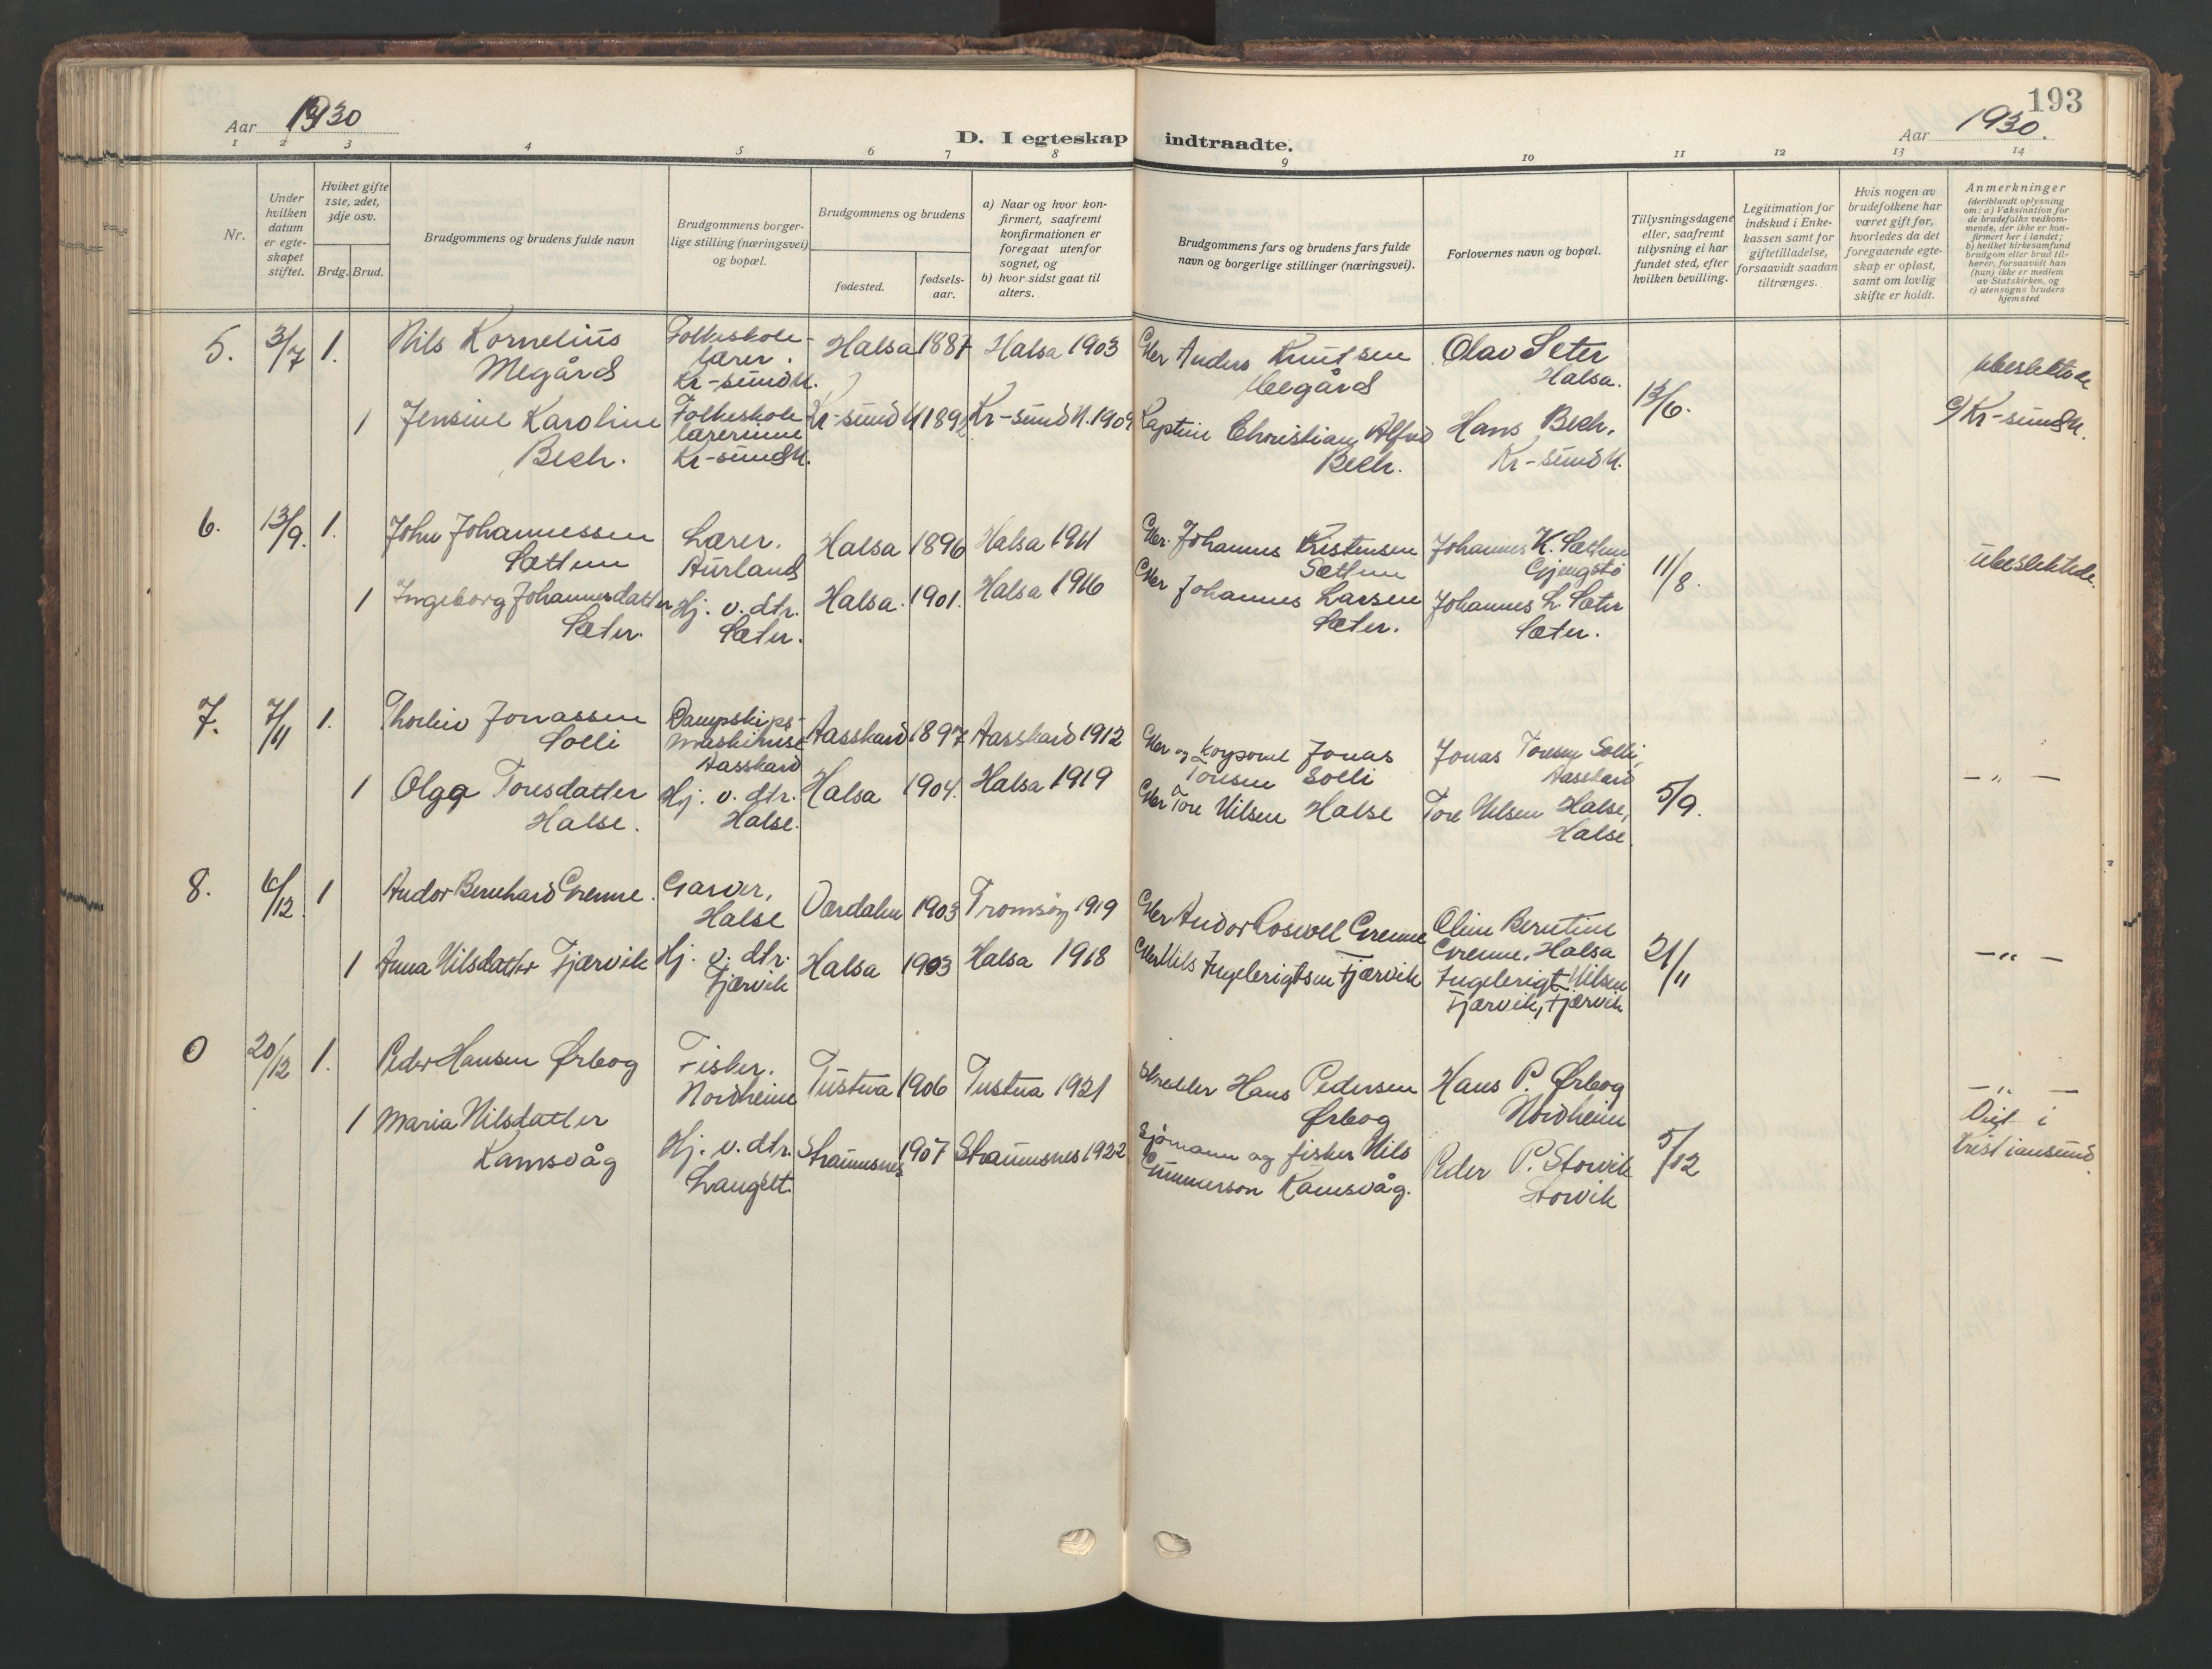 193
Aar 1930
D. I egteskap indtraadte.
Aar 1930.
1 2 3 4 5 6 7 8 9 10 11 12 13 14
Nr.
Under
hvilken
datum
er egte-
skapet
stiftet.
Hviket gifte
1ste, 2det,
3dje osv.
Brdg. Brud.
Brudgommens og brudens fulde navn
Brudgommens borger-
lige stilling (næringsvei)
og bopæl.
Brudgommens og brudens
fødested.
fødsels-
aar.
a) Naar og hvor kon-
firmert, saafremt
konfirmationen er
foregaat utenfor
sognet, og
b) hvor sidst gaat til
alters.
Brudgommens fars og brudens fars fulde
navn og borgerlige stillinger (næringsvei).
Forlovernes navn og bopæl.
Tillysningsdagene
eller, saafremt
tillysning ei har
fundet sted, efter
hvilken bevilling.
Legitimation for
indskud i Enke-
kassen samt for
giftetilladelse,
forsaavidt saadan
tiltrænges.
Hvis nogen av
brudefolkene har
været gift før,
hvorledes da det
foregaaende egte-
skap er opløst,
samt om lovlig
skifte er holdt.
Anmerkninger
(deriblandt oplysning
om: a) Vaksination for
de brudefolks vedkom-
mende, der ikke er kon-
firmert her i landet;
b) hvilket kirkesamfund
brudgom eller brud til-
hører, forsaavidt han
(hun) ikke er medlem
av Statskirken, og
c) utensogns bruders
hjemsted
5. 3/7 1. Nils Kornelius
Megård
Folkeskole-
lærer.
Kr-sund N.
Halsa 1887 Halsa 1903
Gbr Anders Knutsen
Megård
Olav Seter
Halsa.
13/6.
ubeslektede
1 Jensine Karoline
Bech.
Folkeskole
lærerinne
Kr-sund N.
Kr-sund N 1892 Kr-sund N. 1909
Kaptein Christian Alfred
Bech.
Hans Bech.
Kr-sund N.
c) Kr-sund N.
6. 13/9. 1. John Johannessen
Sættem
Lærer.
Aurland
Halsa 1896 Halsa 1911
Gbr. Johannes Kristensen
Sættem
Johannes K. Sættem
Gjengstö
11/8.
ubeslektede.
1 Ingeborg Johannesdatter
Sæter.
Hj. v. dtr.
Sæter.
Halsa. 1901. Halsa 1916
Gbr Johannes Larsen
Sæter.
Johannes L. Sæter
Sæter.
7. 7/11 1. Thorleiv Jonassen
Solli
Dampskips-
maskinist
Aasskard
Aasskard 1897 Aasskard 1912
Gbr og korporal Jonas
Toresen Solli
Jonas Toresen Solli,
Aasskard
5/9.
— „ —
1 Olga Toresdatter
Halse.
Hj. v. dtr.
Halse.
Halsa 1904. Halsa 1919
Gbr Tore Nilsen Halse
Tore Nilsen Halse,
Halse.
8. 6/12. 1 Andor Bernhard Grenne.
Garver,
Halse
Værdalen 1903 Tromsöy 1919
Gbr Andor Grenne
Oline Berntine
Grenne, Halsa
21/11
— „ —
1 Anna Nilsdatter Fjærvik
Hj. v. dtr.
Fjærvik
Halsa 1903 Halsa 1918
Gbr Nils Ingebrigtsen Fjærvik
Ingebrigt Nilsen
Fjærvik, Fjærvik
0 20/12 1. Peder Hansen Ørbog
Fisker.
Nordheim
Tustna 1906 Tustna 1921
Skredder Hans Pedersen
Ørbog
Hans P. Ørbog
Nordheim
5/12
— „ —
Viet i
Kristiansund.
1 Maria Nilsdatter
Kamsvåg
Hj. v. dtr.
Langset.
Straumsnes 1907 Straumsnes 1922
Sjömann og fisker Nils
Gunnarson Kamsvåg.
Peder P. Storvik
Storvik